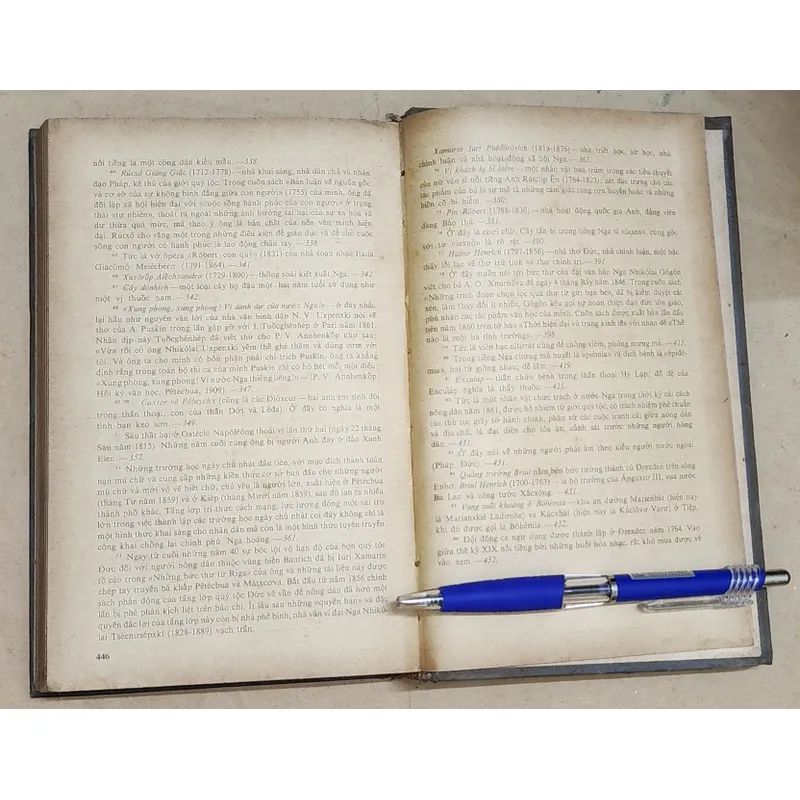 nổi tiếng là một công dân kiểu mẫu. —338.
Rútxô Giăng Giắc (1712-1778) — nhà khai sáng, nhà dân chủ và nhân
đạo Pháp, kẻ thù của giới quý tộc. Trong cuốn sách «Bàn luận về nguồn gốc
và cơ sở của sự không bình đẳng giữa con người» (1755) của mình, ông đã
đối lập xã hội hiện đại với «cuộc sống hạnh phúc của con người» ở trạng
thái «tự nhiên», thoát ra ngoài những ảnh hưởng tai hại của sự xa hoa và
dư thừa quá mức, mà theo ý ông là bản chất của nền văn minh hiện
đại. Rútxô cho rằng một trong những điều kiện để giáo dục và để cho cuộc
sống con người có hạnh phúc là lao động chân tay. —338.
Tức là vở ôpêra «Rôbert con quỷ» (1831) của nhà soạn nhạc Italia
Giacômô Meiecberơ (1791-1864). —341
Xuvôrôp Alêchxanđrơ (1729-1800) — thống soái kiệt xuất Nga. —342.
Cây đônhich — một loại cây họ đậu một - hai năm tuổi sử dụng như
một vị thuốc nam. —342.
«Xung phong, xung phong! Vì danh dự của nước Nga!» — ở đây nhắc
lại hầu như nguyên văn lời của nhà văn bình dân N. V. Uxpenxki nói về
thơ của A. Puskin trong lần gặp gỡ với I. Tuôcghênhép ở Pari năm 1861.
Nhân dịp này Tuôcghênhép đã viết thư cho P. V. Annhenkốp như sau:
«Vừa rồi có ông Nhikôlai Uxpenxki yếm thế ghé thăm và dùng cơm với
tôi. Và ông ta cho mình có bổn phận phải chỉ trích Puskin, ông ta khẳng
định rằng trong toàn bộ thi ca của mình Puskin chỉ có hò hét mỗi một điều:
«Xung phong, xung phong! Vì nước Nga thiêng liêng!»» (P. V. Annhenkốp.
Hồi ký văn học, Pêtecbua, 1909). —347.
Caxtor và Pôluychx (cũng là các Điôxcur — hai anh em sinh đôi
trong thần thoại, con của thần Dớt và Lêđa). Ở đây có nghĩa là một
tình bạn keo sơn. —349.
Sau thất bại ở Oatéclô Napôlêông thoái vị lần thứ hai (ngày 22 tháng
Sáu năm 1815). Những năm cuối cùng ông bị người Anh đày ở đảo Xanh
Elen. —352.
Những trường học ngày chủ nhật đầu tiên, với mục đích thanh toán
nạn mù chữ và cung cấp những kiến thức sơ bộ ban đầu cho những người
mù chữ và mới vỡ vẽ biết chữ, chủ yếu là người lớn, xuất hiện ở Pêtécbua
(tháng Tư năm 1859) và ở Kiép (tháng Mười năm 1859), sau đó lan ra nhiều
thành phố khác. Tầng lớp trí thức cách mạng, lực lượng đóng một vai trò
lớn trong việc thành lập các trường học ngày chủ nhật coi đây không chỉ là
một hình thức khai sáng cho nhân dân mà còn là một hình thức tuyên truyền
công khai chống lại chính phủ Nga hoàng. —361.
Ngay từ cuối những năm 40 sự bóc lột vô hạn độ của bọn quý tộc
Đức đối với người nông dân thuộc vùng biển Bantich đã bị Iuri Xamarin
tố cáo trong «Những bức thư từ Riga» của ông và những tài liệu này được
chép tay truyền bá khắp Pêtécbua và Mátxcova. Bắt đầu từ năm 1856 chính
sách phản động của tầng lớp quý tộc Đức về vấn đề nông dân đã hơn một
lần bị phê phán kịch liệt trên báo chí. Ít lâu sau những «quyền hạn» và đặc
quyền đặc lợi của tầng lớp này còn bị nhà phê bình, nhà văn vĩ đại Nga Nhikô-
lai Tsécnưsépxki (1828-1889) vạch trần.
446
Xamarin Iuri Phêđôrôvich (1819-1876) — nhà triết học, sử học, nhà
chính luận và nhà hoạt động xã hội Nga. —363.
Vị khách lạ bí hiểm — một nhân vật bao trùm trong các tiểu thuyết
của nữ văn sĩ nổi tiếng Anh Rátclip En (1764-1823), nét đặc trưng cho các
tác phẩm của bà là sự mô tả những cảm giác rùng rợn huyền hoặc và những
biến cố bí hiểm. —380.
Pin Rôbert (1788-1830) — nhà hoạt động quốc gia Anh, đảng viên
đảng Bảo thủ. —381.
Ở đây là chơi chữ. Cây tần bì trong tiếng Nga là «iaxen», cùng gốc
với từ «iaxnô» là rõ rệt. —390.
Hainơ Henrich (1797-1856) — nhà thơ Đức, nhà chính luận, một bậc
thầy lỗi lạc về thơ trữ tình và thơ chính trị. —391.
Ở đây muốn nói tới bức thư của đại văn hào Nga Nhikôlai Gôgôn
viết cho bà A. O. Xmirnôva đề ngày 4 tháng Bảy năm 1846. Trong cuốn sách
«Những trích đoạn chọn lọc qua thư từ gửi bạn bè», đã bị kiểm duyệt cắt
nén, làm thay đổi lá nhiều, Gôgôn kêu gọi sự hoàn thiện đạo đức tôn giáo,
phủ nhận các tác phẩm văn học của mình. Cuốn sách được xuất bản lần đầu
tiên năm 1860 trên tờ báo «Thời hiện đại và trang kinh tế»
là một bà tỉnh trưởng». —398.
Tức là viên bạc nitơrat dùng để chống viêm, phỏng mưng mủ. —415.
Trong tiếng Nga chứng mà huyết là «piêmia» và dịch bệnh là «êpidê-
mia», hai từ giống nhau, dễ lầm. —419.
Exculáp — thần chữa bệnh trong thần thoại Hy Lạp, để chỉ
Exculáp nghĩa là thầy thuốc. —425.
Tức là một nhân vật chức trách ở nước Nga trong thời kỳ cải cách
nông dân năm 1861, được bổ nhiệm từ giới quý tộc, có trách nhiệm phê chuẩn
các thủ tục giấy tờ hành chính, phân xử các cuộc tranh cãi giữa nông dân
và địa chủ, là đại diện cho tòa án, cảnh sát trước những người nông
dân. —431.
Ở đây nói về những người phát âm theo kiểu người nước ngoài
(Pháp, Đức). —431.
Quảng trường Briul nằm bên bức tường thành cũ Đrexđen trên sông
Enbơ. Briul Henrich (1700-1763) — là bộ trưởng của Ápguxtơ III, vua nước
Ba Lan và công tước Xắcxông. —431.
Vùng suối khoáng ở Bôhêmia — khu an dưỡng Marienbát (hiện nay
là Marianxkiê Ladơnhê) và Kácxbát (hiện nay là Káclôvư Varư) ở Tiệp,
khi đó được gọi là Bôhêmia. —432.
Đội đồng ca ngự dụng được thành lập ở Đrexđen năm 1764. Vào
giữa thế kỷ XIX nổi tiếng bởi những buổi hòa nhạc, rất khó mua được vé
vào xem. —432.